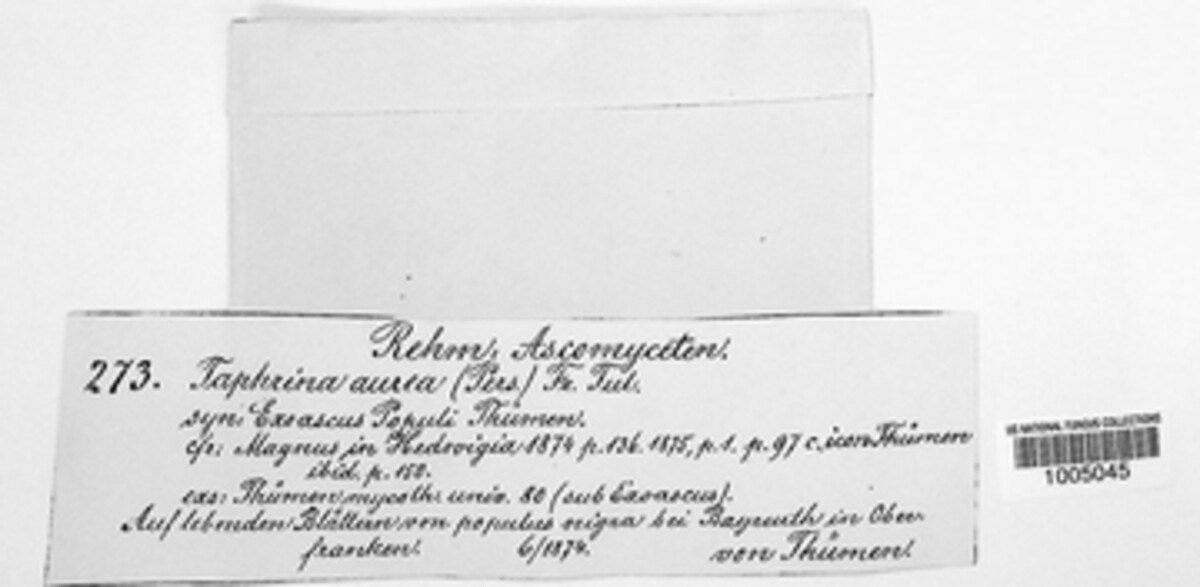 Rehm, Ascomyceten.
273. Taphrina aurea (Pers) Fr. Tul.
syn: Exoascus Populi Thümen.
cfr: Magnus in Hedwigia 1874 p. 136. 1875, p. 1. p. 97 c. icon Thümen
ibid. p. 150.
exs: Thümen mycoth. univ. 80 (sub Exoascus).
Auf lebenden Blättern von populus nigra bei Bayreuth in Ober-
franken. 6/1874. von Thümen.
US NATIONAL FUNGUS COLLECTIONS
1005045